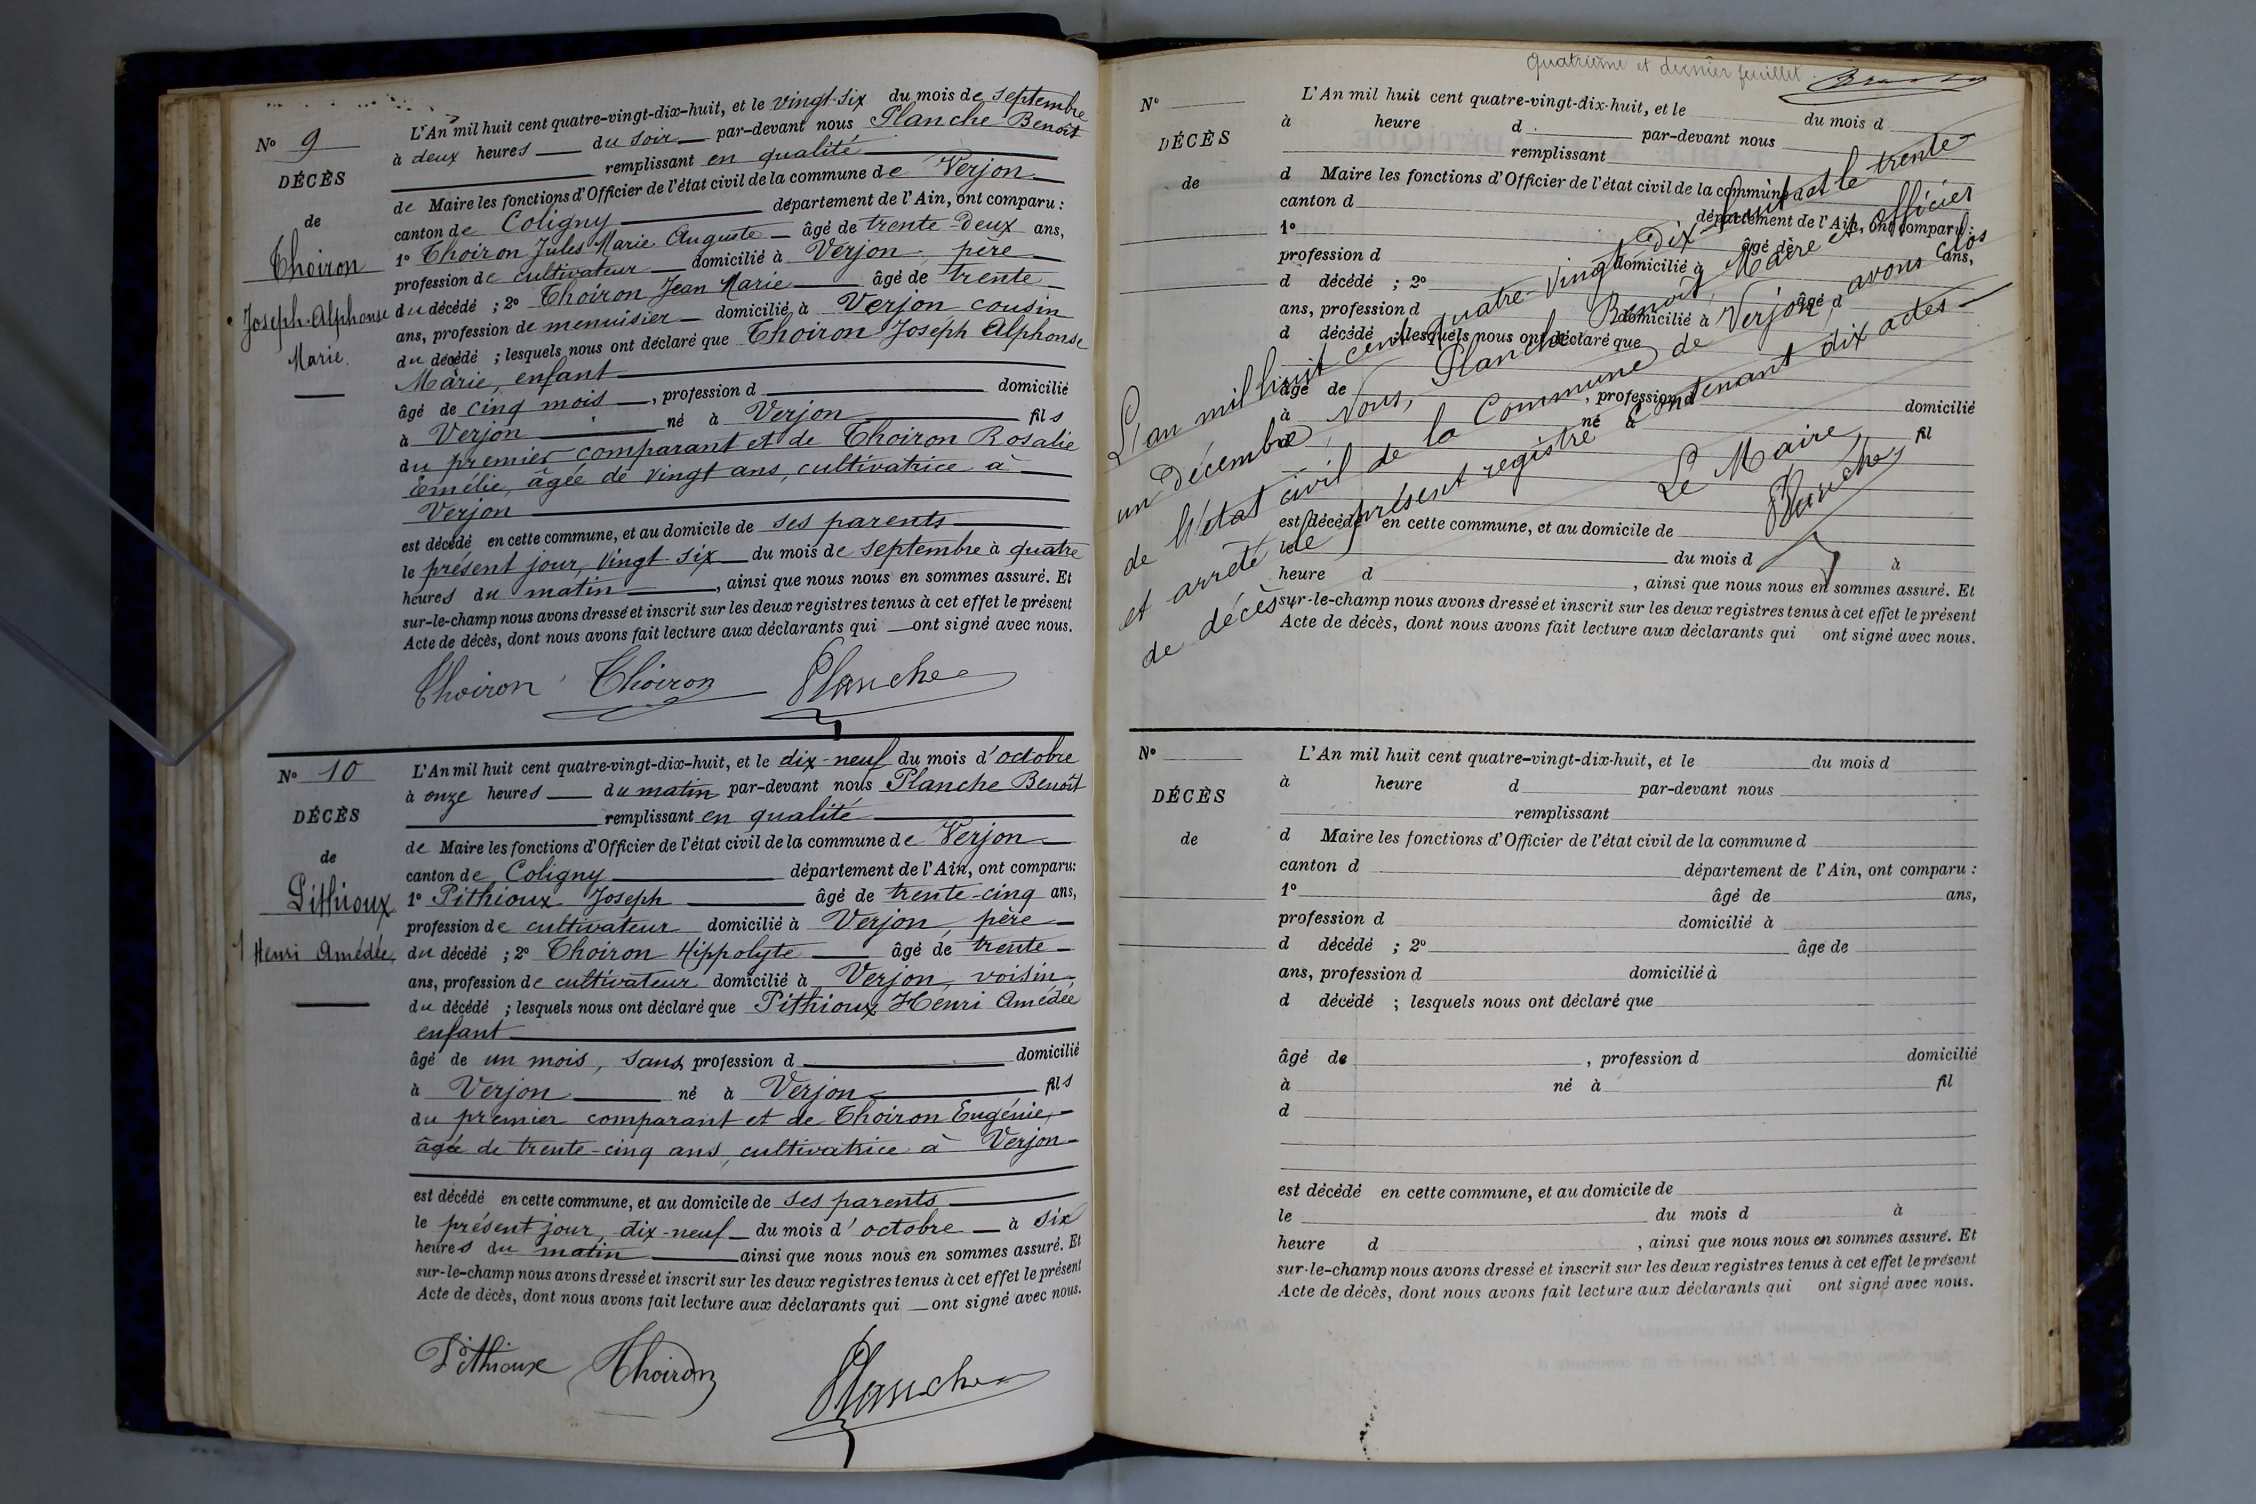 L'An mil huit cent quatre-vingt-dix-huit, et le vingt-six du mois de septembre
N° 9
à deux heures du soir par-devant nous Planche Benoît
DÉCÈS
remplissant en qualité
de Maire les fonctions d'Officier de l'état civil de la commune de Verjon
de
canton de Coligny département de l'Ain, ont comparu :
Thoiron
1° Thoiron Jules Marie Auguste âgé de trente-deux ans,
profession de cultivateur domicilié à Verjon, père
Joseph-Alphonse
du décédé ; 2° Thoiron Jean Marie âgé de trente
Marie.
ans, profession de menuisier domicilié à Verjon cousin
du décédé ; lesquels nous ont déclaré que Thoiron Joseph Alphonse
Marie, enfant
âgé de cinq mois, profession d domicilié
à Verjon né à Verjon fils
du premier comparant et de Thoiron Rosalie
Emélie, âgée de vingt ans, cultivatrice à
Verjon
est décédé en cette commune, et au domicile de ses parents
le présent jour, vingt-six du mois de septembre à quatre
heures du matin, ainsi que nous nous en sommes assuré. Et
sur-le-champ nous avons dressé et inscrit sur les deux registres tenus à cet effet le présent
Acte de décès, dont nous avons fait lecture aux déclarants qui ont signé avec nous.
Thoiron Thoiron Planche
L'An mil huit cent quatre-vingt-dix-huit, et le dix-neuf du mois d'octobre
N° 10
à onze heures du matin par-devant nous Planche Benoît
DÉCÈS
remplissant en qualité
de Maire les fonctions d'Officier de l'état civil de la commune de Verjon
de
canton de Coligny département de l'Ain, ont comparu:
Pithioux
1° Pithioux Joseph âgé de trente-cinq ans,
profession de cultivateur domicilié à Verjon, père
Henri Amédée,
du décédé ; 2° Thoiron Hippolyte âgé de trente
ans, profession de cultivateur domicilié à Verjon, voisin
du décédé ; lesquels nous ont déclaré que Pithioux Henri Amédée
enfant
âgé de un mois, sans profession d domicilié
à Verjon né à Verjon fils
du premier comparant et de Thoiron Eugénie,
âgée de trente-cinq ans, cultivatrice à Verjon
est décédé en cette commune, et au domicile de ses parents
le présent jour, dix-neuf du mois d'octobre à six
heures du matin ainsi que nous nous en sommes assuré. Et
sur-le-champ nous avons dressé et inscrit sur les deux registres tenus à cet effet le présent
Acte de décès, dont nous avons fait lecture aux déclarants qui ont signé avec nous.
Pithioux Thoiron
Planche
Quatrième et dernier feuillet.
N°
L'An mil huit cent quatre-vingt-dix-huit, et le du mois d
à heure d par-devant nous
DÉCÈS
remplissant
de
d Maire les fonctions d'Officier de l'état civil de la commune d
canton d département de l'Ain, ont comparu :
1° âgé de ans,
profession d domicilié à
d décédé ; 2° âgé d
ans, profession d domicilié à
d décédé ; lesquels nous ont déclaré que
âgé de, profession d domicilié
à né à fil
d
L'an mil huit cent quatre-vingt dix-huit et le trente
un Décembre, Nous, Planche Benoît, Maire et officier
de l'état civil de la Commune de Verjon, avons clos
et arrêté le présent registre contenant dix actes
de décès.
Le Maire
Planche
est décédé en cette commune, et au domicile de
le du mois d à
heure d, ainsi que nous nous en sommes assuré. Et
sur-le-champ nous avons dressé et inscrit sur les deux registres tenus à cet effet le présent
Acte de décès, dont nous avons fait lecture aux déclarants qui ont signé avec nous.
N°
L'An mil huit cent quatre-vingt-dix-huit, et le du mois d
à heure d par-devant nous
DÉCÈS
remplissant
de
d Maire les fonctions d'Officier de l'état civil de la commune d
canton d département de l'Ain, ont comparu :
1° âgé de ans,
profession d domicilié à
d décédé ; 2° âge de
ans, profession d domicilié à
d décédé ; lesquels nous ont déclaré que
âgé de, profession d domicilié
à né à fil
d
est décédé en cette commune, et au domicile de
le du mois d à
heure d, ainsi que nous nous en sommes assuré. Et
sur-le-champ nous avons dressé et inscrit sur les deux registres tenus à cet effet le présent
Acte de décès, dont nous avons fait lecture aux déclarants qui ont signé avec nous.